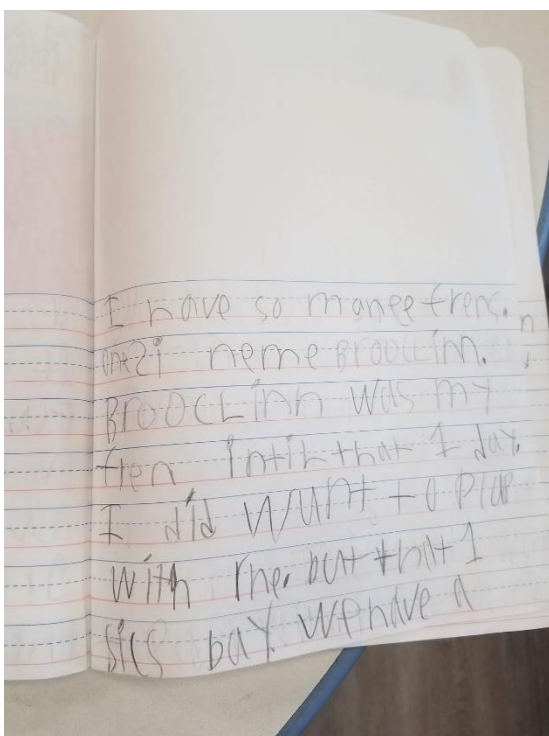 I have so manee frens.
neme BROOCLinn.
BROOCLinn was my
fren intil that 1 day.
I did wunt to plap
with me. but that 1
sics bay. we have a
n